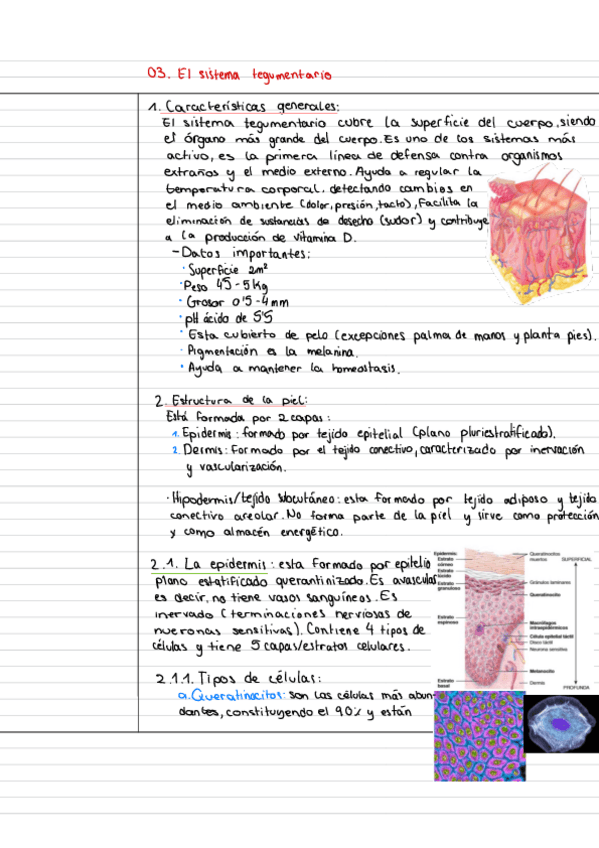 03. El sistema tegumentario
1. Características generales:
El sistema tegumentario cubre la superficie del cuerpo, siendo
el órgano más grande del cuerpo. Es uno de los sistemas más
activo, es la primera línea de defensa contra organismos
extraños y el medio externo. Ayuda a regular la
temperatura corporal, detectando cambios en
el medio ambiente (dolor, presión, tacto), Facilita la
eliminación de sustancias de desecho (sudor) y contribuye
a la producción de vitamina D.
- Datos importantes:
· Superficie 2m²
· Peso 4'5 - 5 kg
· Grosor 0'5 - 4 mm
· pH ácido de 5'5
· Esta cubierto de pelo (excepciones palma de manos y planta pies).
· Pigmentación es la melanina.
· Ayuda a mantener la homeostasis.
2. Estructura de la piel:
Está formada por 2 capas:
1. Epidermis: formado por tejido epitelial (plano pluriestratificado).
2. Dermis: formado por el tejido conectivo, caracterizado por inervación
y vascularización.
· Hipodermis/tejido subcutáneo: esta formado por tejido adiposo y tejido
conectivo areolar. No forma parte de la piel y sirve como protección
y como almacén energético.
2.1. La epidermis: esta formado por epitelio
plano estatificado querantinizado. Es avascular
es decir, no tiene vasos sanguíneos. Es
inervado (terminaciones nerviosas de
nueronas sensitivas). Contiene 4 tipos de
células y tiene 5 capas/estratos celulares.
Epidermis:
Estrato
córneo
Estrato
lúcido
Estrato
granuloso
Estrato
espinoso
Estrato
basal
Queratinocitos
muertos
SUPERFICIAL
Gránulos laminares
Queratinocito
Macrófagos
intraepidérmicos
Célula epitelial táctil
Disco táctil
Neurona sensitiva
Melanocito
Dermis
PROFUNDA
2.1.1. Tipos de células:
a. Queratinocitos: son las células más abun-
dantes, constituyendo el 90% y están